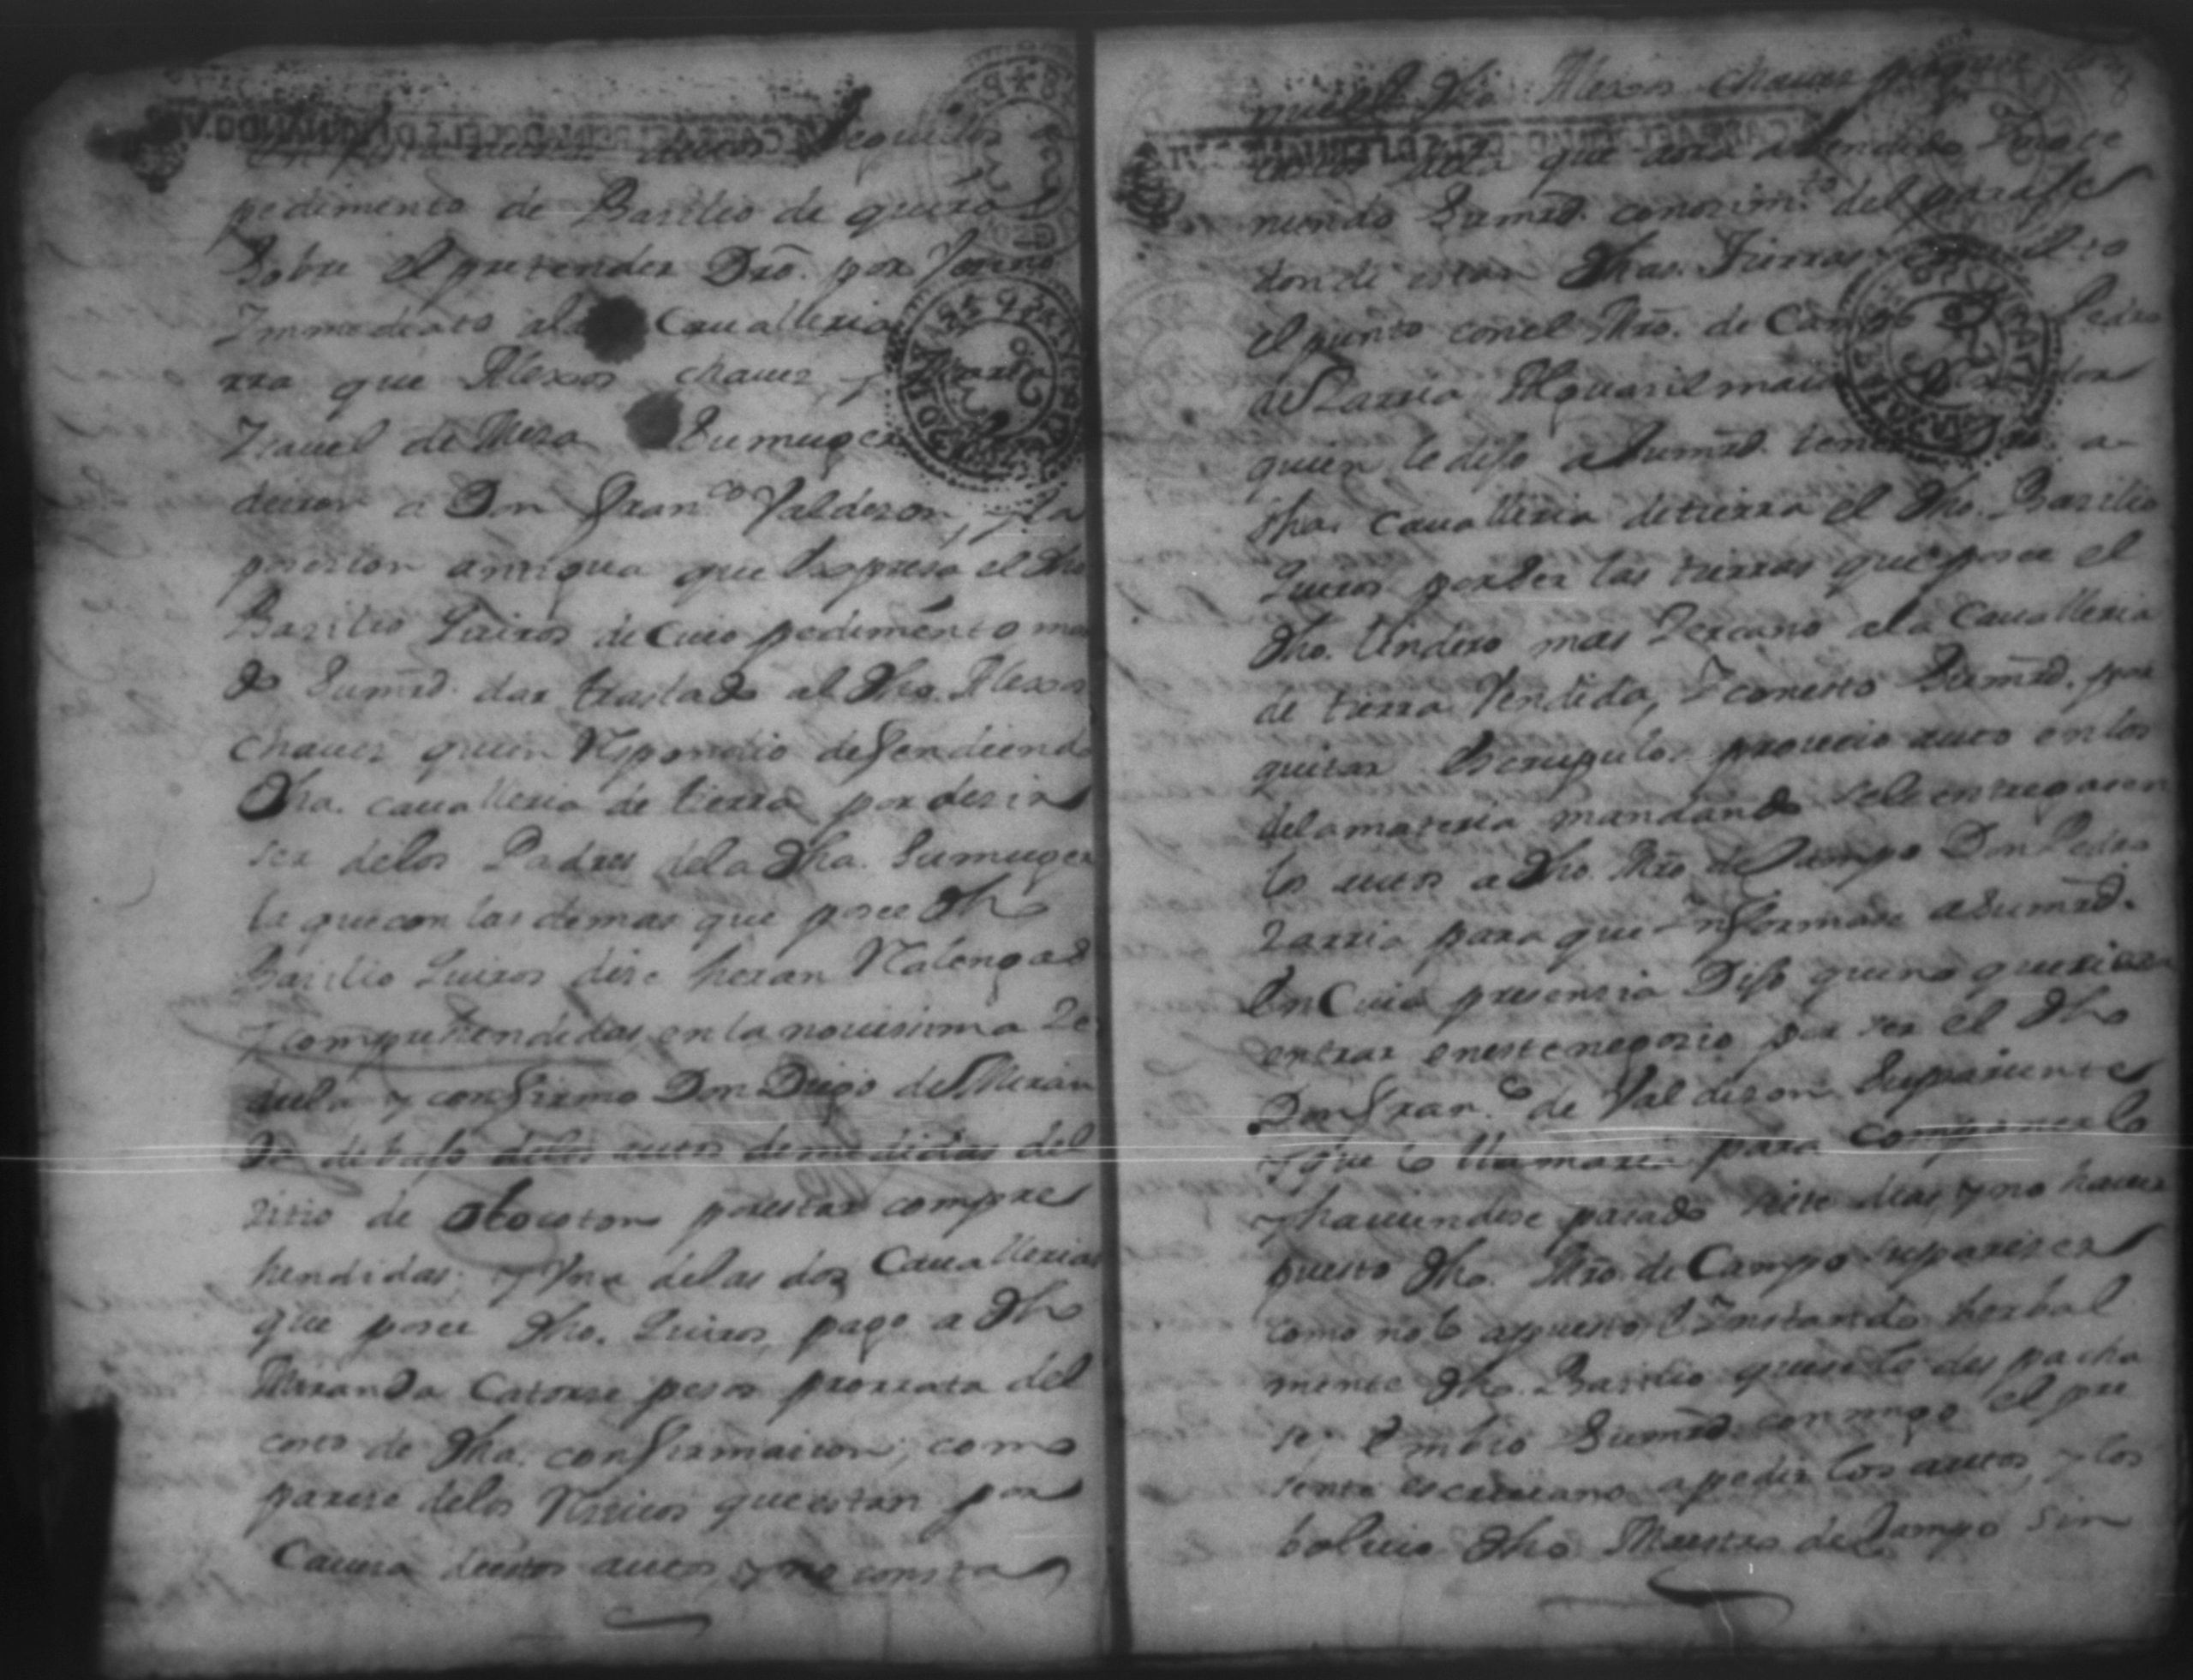 pedimento de Basilio de quiros
Sobre el pretender Dro. por Vezino
Immediato ala Caualleria
rra que Alexos chauez y
Ysauel de Mesa Su muger
dieron a Don Fran.co Valderon, y la
posesion antigua que Expresa el dho
Basilio Quiros de Cuio pedimento man
do Sumrd. dar traslado al Dho. Alexos
chauez quien Respondio defendiendo
Dha. caualleria de tierra por dezir
ser delos Padres dela Dha. Sumuger
la que con las demas que posee Dho
Basilio Quiros dize heran Realengas
y comprehendidas en la nouissima Ze
dula y confirmo Don Diego de Miran
da debajo delos autos de medidas del
sitio de Ocoton por estar compre
hendidas y Vna delas dos Cauallerias
que posee Dho. Quiros, pago a Dho
Miranda Catorze pesos prorrata del
costo de Dha. confirmacion, como
pareze delos Reciuos que estan por
Cauesa destos autos, y no consta
Dho Alexos chauez
que aora a Vendido
niendo Sumrd. conosim.to del paraje
donde estan Dhas. Tierras
el punto con el Mro. de Campo Pedro
de Larria Alguasil maior
quien le dijo a Sumrd. a
Dha. Caualleria de tierra el Dho. Basilio
Quiros por ser las tierras que posee el
Dho. lindero mas Zercano ala Caualleria
de tierra Vendida, Y con esto Sumrd. por
quitar Escrupulos proueio auto en los
dela materia mandando sele entregasen
los autos a Dho. Mro de Campo Don Pedro
Larria para que Informase a Sumrd.
En Cuia presensia Dijo que no queria
entrar en este negosio por ser el Dho
Don Fran.co de Valderon Su pariente
y que lo llamaria para componerlo
y hauiendose pasado siete dias, y no hauer
puesto Dho. Mro. de Campo su pareser
como no lo a puesto, E Ynstando berbal
mente Dho. Basilio que se le despacha
se, Embio Sumrd. conmigo el pre
sente escriuano a pedir los autos, y los
boluio Dho Maestro de Campo Sin